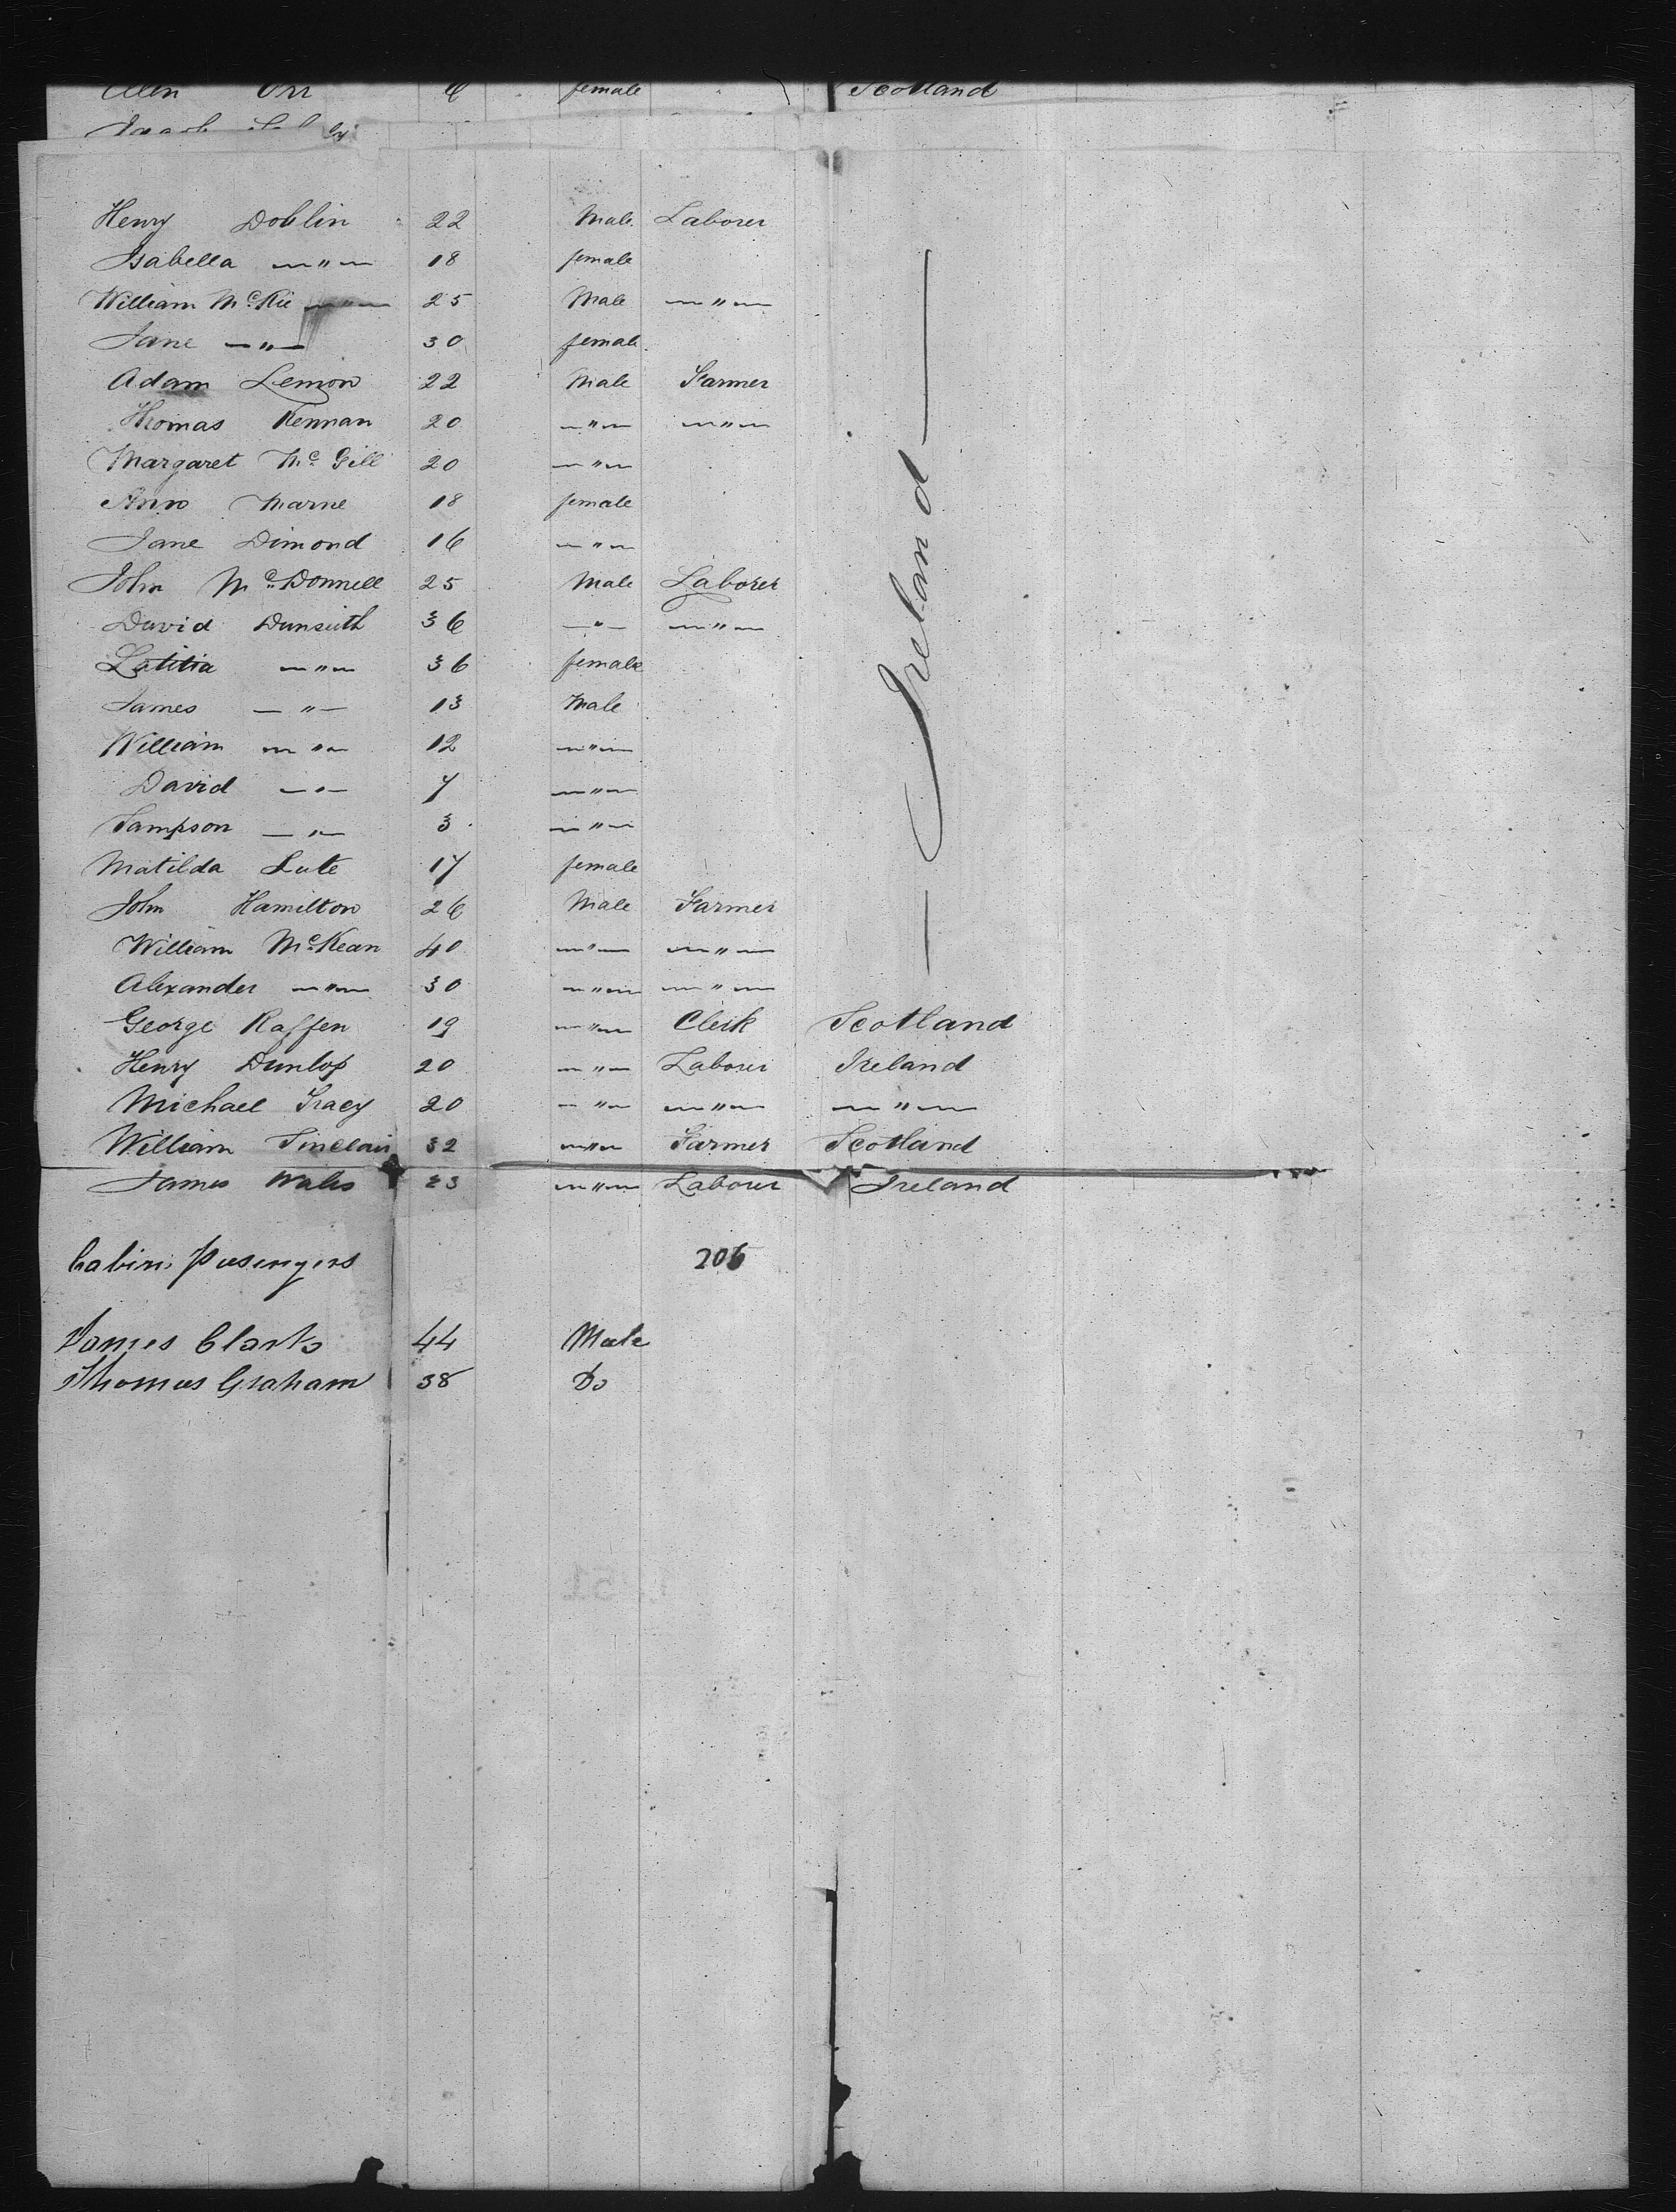 Ellen Orr 6 female Scotland
Henry Doblin 22 Male Laborer
Isabella — " — 18 female
William McKie — " — 25 Male — " —
Jane — " — 30 female
Adam Lemon 22 Male Farmer
Thomas Kennan 20 — " — — " —
Margaret McGill 20 — " —
Ann Marne 18 female
Jane Dimond 16 — " —
John McDonnell 25 Male Laborer
David Dunseith 36 — " — — " —
Latitia — " — 36 female
James — " — 13 Male
William — " — 12 — " —
David — " — 7 — " —
Sampson — " — 3 — " —
Matilda Lute 17 female
John Hamilton 26 Male Farmer
William McKean 40 — " — — " —
Alexander — " — 30 — " — — " —
— Ireland —
George Raffen 19 — " — Clerk Scotland
Henry Dunlop 20 — " — Laborer Ireland
Michael Tracy 20 — " — — " — — " —
William Sinclair 32 — " — Farmer Scotland
James Wales 23 — " — Laborer Ireland
Cabin Passengers 206
James Clarks 44 Male
Thomas Graham 38 Do